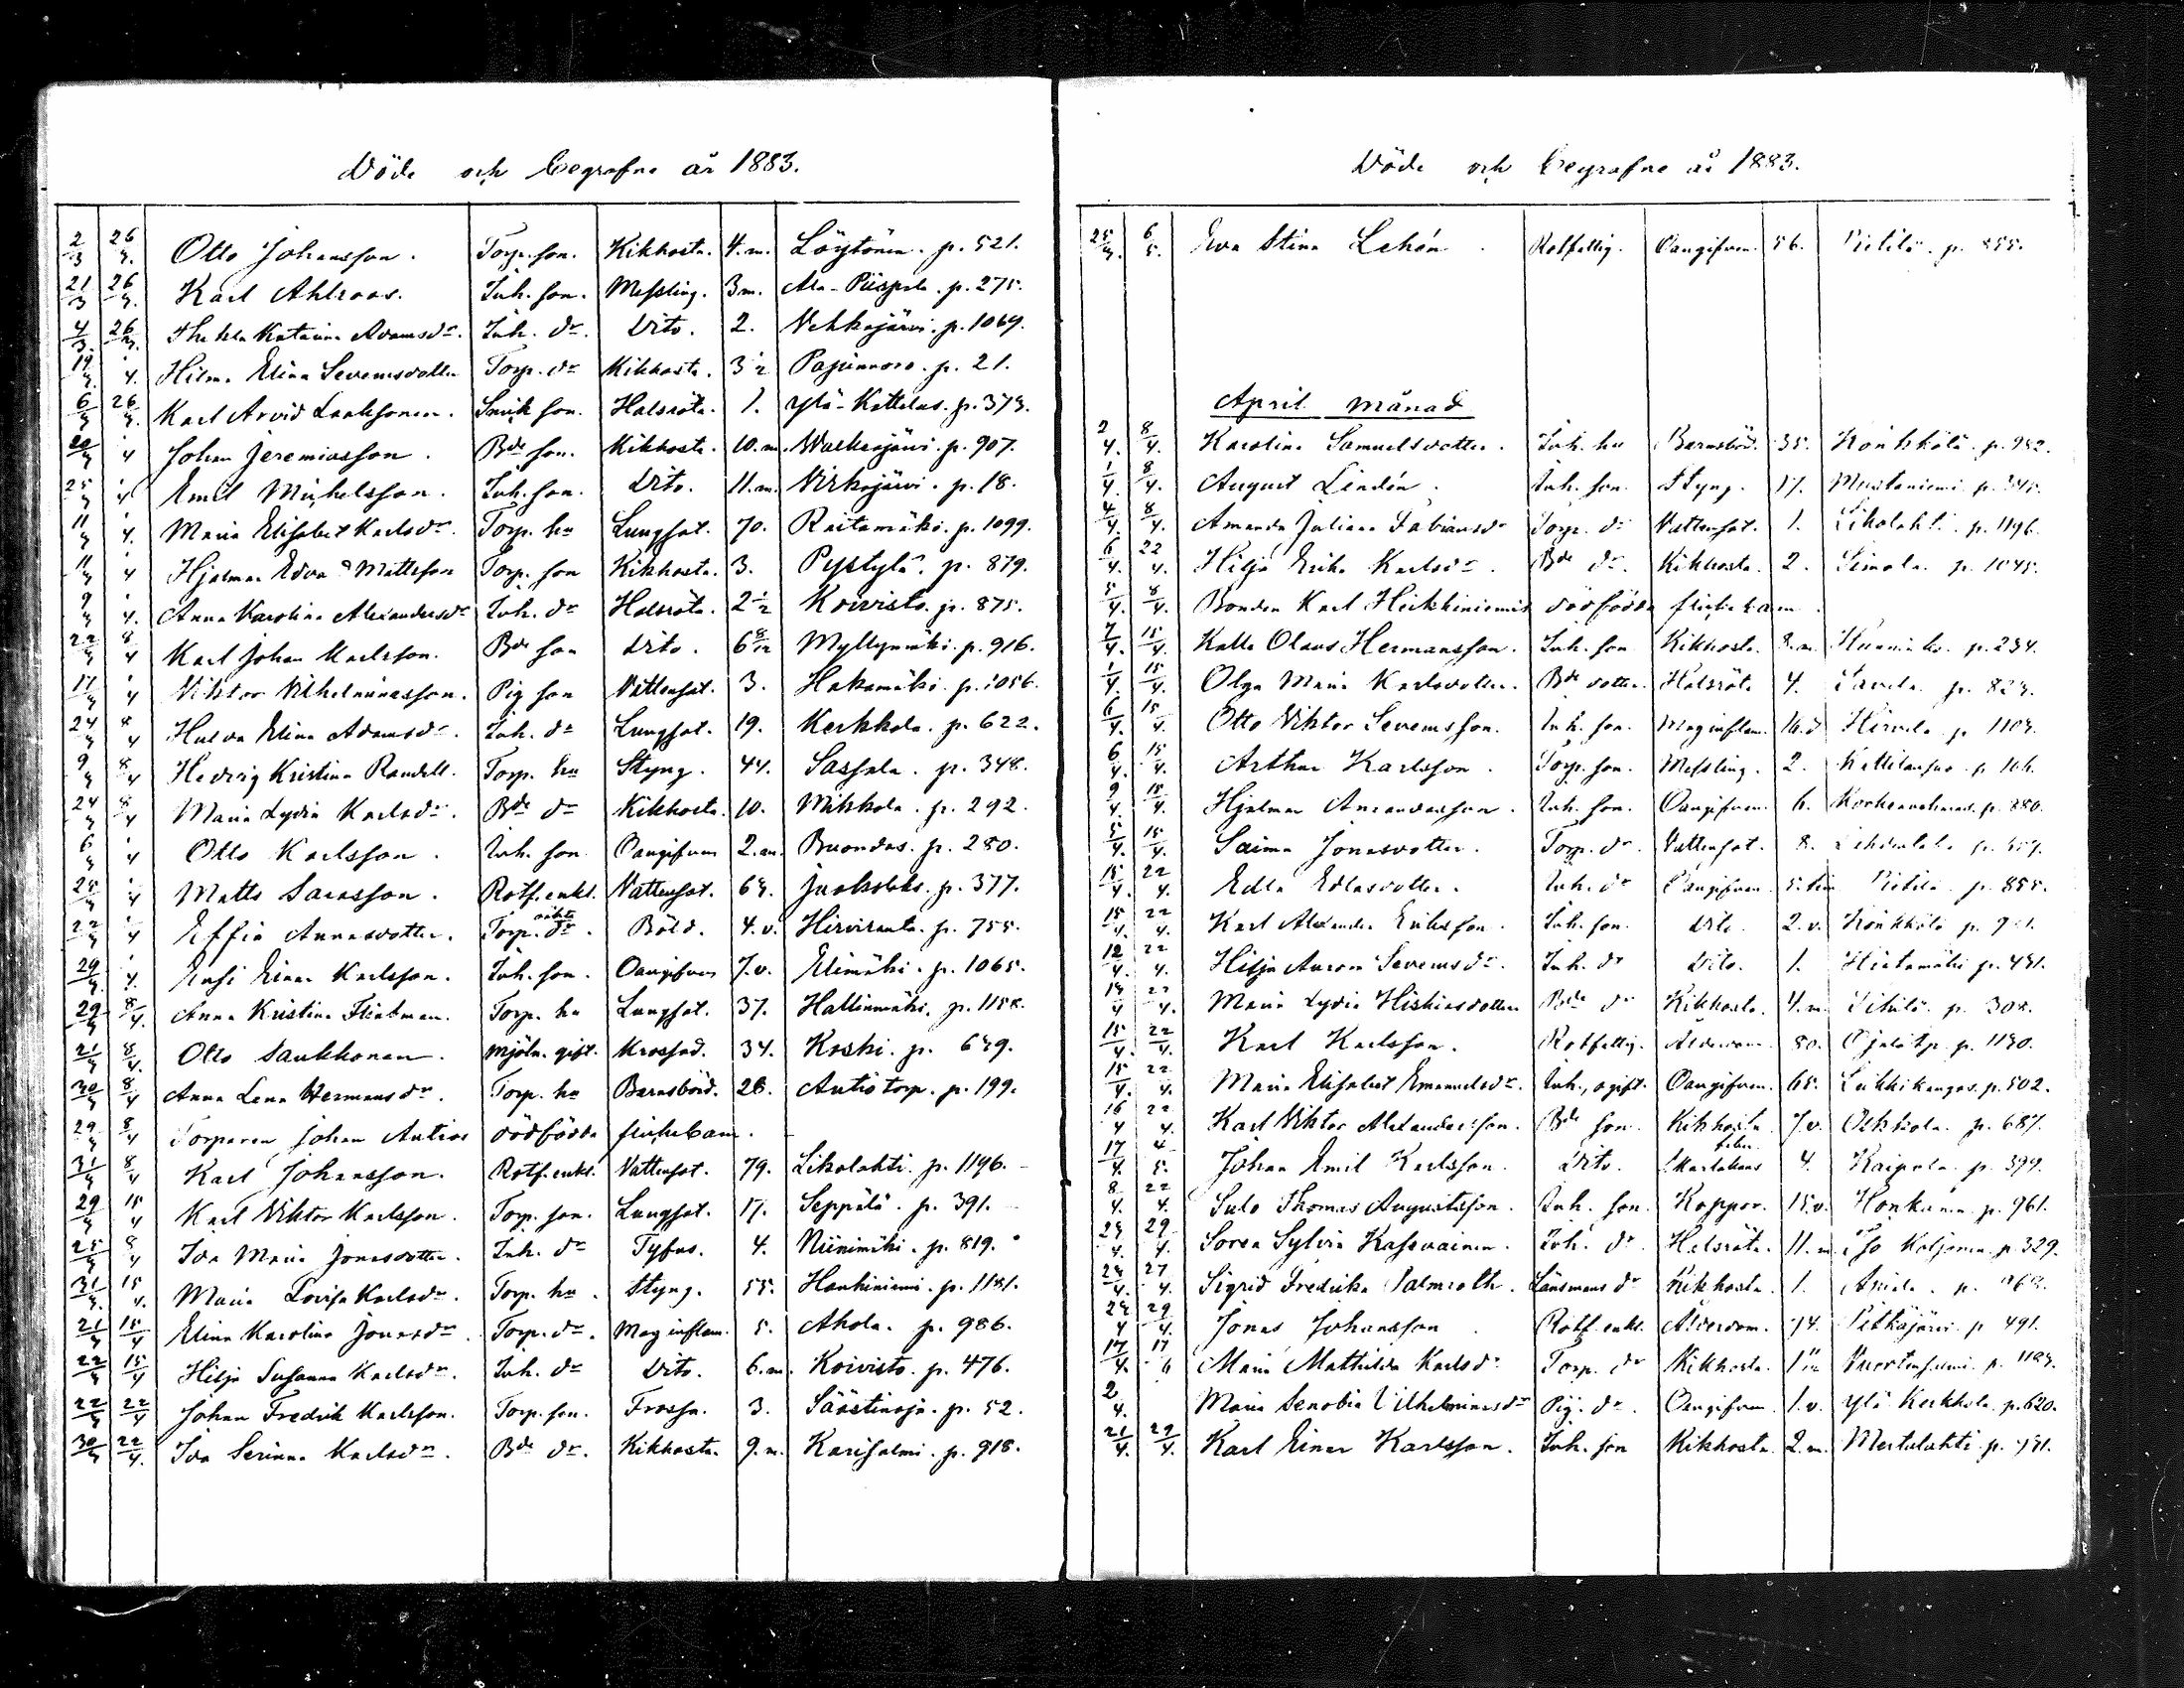 Döde och begrafne år 1883.
2/3 26/3. Otto Johansson. Torp. son. Kikhosta. 4. m. Löytönen. p. 521.
21/3 26/3. Karl Ahlroos. Inh. son. Messling. 3 m. Ala-Piispala. p. 275.
4/3. 26/3. Thekla Katarina Adamsdr. Inh. dr. Dito. 2. Vehkajärvi. p. 1069.
19/3. " 4. Hilma Elina Severinsdotter Torp. dr Kikhosta. 3 1/2 Pajunnoro. p. 21.
6/3 26/3. Karl Arvid Laaksonen. Smik son. Halsröta. 1. Ylä-Kottelus. p. 373.
22/3 " 4 Johan Jeremiasson. Bde son. Kikhosta. 10. m. Walkeajärvi. p. 907.
25/3 " 4 Emil Mickelsson. Inh. son. Dito. 11. m. Virkajärvi. p. 18.
11/3 " 4. Maria Elisabet Karlsdr. Torp. hu Lungsot. 70. Raitamäki. p. 1099.
11/3 " 4 Hjalmar Edvard Mattsson Torp. son Kikhosta. 3. Pystylä. p. 879.
9/3 " 4. Anna Karolina Alexandersdr Inh. dr Halsröta. 2 1/2 Koivisto. p. 875.
22/3 8/4 Karl Johan Karlsson. Bde son Dito. 6 8/12 Myllymäki. p. 916.
17/3 " 4 Viktor Vilhelminasson. Pig son Vattensot. 3. Hakamäki. p. 1056.
24/3 8/4 Hulda Elina Adamsdr. Inh. dr Lungsot. 19. Kerkkola. p. 622.
9/3 8/4 Hedvig Kristina Randell. Torp. hu Styng. 44. Sassala. p. 348.
24/3 8/4 Maria Lydia Karlsdr. Bde dr Kikhosta. 10. Mikkola. p. 292.
6/3 " 4 Otto Karlsson. Inh. son Oangifven 2. m. Buondas. p. 280.
25/3 " 4 Matts Sarasson. Rotf. enkl. Vattensot. 63. Jaakolets. p. 377.
22/3 " 4 Effia Annasdotter. Torp. oäkta dr. Böld. 4. v. Hirviranta. p. 755.
29/3. " 4. Ensi Einar Karlsson. Inh. son. Oangifven 7. v. Elimäki. p. 1065.
29/3 8/4. Anna Kristina Flinkman. Torp. hu Lungsot. 37. Hallinmäki. p. 1158.
21/3 8/4. Otto Saukkonen. Mjöln. gift. Krossad. 34. Koski. p. 639.
30/3 8/4 Anna Lena Hermansdr. Torp. hu Barnsbörd. 28. Antiotorp. p. 199.
29/3 8/4 Torparen Johan Antios dödfödda flickebarn.
31/3 8/4 Karl Johansson. Rotf. enkl. Vattensot. 79. Likolahti. p. 1196.
29/3 15/4 Karl Viktor Karlsson. Torp. son. Lungsot. 17. Seppälä. p. 391.
25/3 8/4 Ida Maria Jonasdotter. Inh. dr Tyfus. 4. Niinimäki. p. 819.
31/3. 15/4. Maria Lovisa Karlsdr. Torp. hu. Styng. 55. Haukiniemi. p. 1181.
21/3 15/4 Elina Karolina Jonasdr. Torp. dr. Mag inflam. 5. Ahola. p. 986.
22/3 15/4 Hilja Susanna Karlsdr. Inh. dr Dito. 6. m. Koivisto. p. 476.
22/3 22/4 Johan Fredrik Karlsson. Torp. son. Frossa. 3. Säästinoja. p. 52.
30/3 22/4. Ida Serina Karlsdr. Bde dr. Kikhosta. 9. m. Karisalmi. p. 918.
Döde och begrafne år 1883.
25/3. 6/5. Eva Stina Lehén. Rotfattig. Oangifven. 56. Pietilä. p. 855.
April månad
2/4. 8/4. Karolina Samuelsdotter. Inh. hu Barnsbörd. 35. Könkkölä. p. 982.
1/4. 8/4. August Lindén. Inh. son. Styng. 17. Mustaniemi p.
4/4. 8/4. Amanda Juliana Fabiansdr Torp. dr Vattensot. 1. Likolahti. p. 1196.
6/4. 22/4. Hilja Erika Karlsdr. Bde dr. Kikhosta. 2. Simola. p. 1045.
5/4. 8/4. Bonden Karl Heikkiniemis dödfödda flickebarn.
7/4. 15/4. Kalle Olaus Hermansson. Inh. son Kikhosta. 8. m. Hunninko. p. 234.
1/4. 15/4. Olga Maria Karlsdotter. Bde dotter. Halsröta 4. p. 823.
6/4. 15/4. Otto Viktor Severinsson. Inh. son. Mag inflam. 16. d Hirvelä. p. 1103.
6/4. 15/4. Arthur Karlsson. Torp. son. Messling. 2. p. 166.
9/4. 15/4. Hjalmar Amandasson. Inh. son. Oangifven. 6. p. 880.
5/4. 15/4. Saima Jonasdotter. Torp. dr. Vattensot. 8.
15/4. 22/4. Edla Edlasdotter. Inh. dr Oangifven. 5. tim Pietilä. p. 855.
15/4. 22/4. Karl Alexander Eriksson. Inh. son. Dito. 2. v. Könkkölä p.
12/4. 22/4. Hilja Aurora Severinsdr. Inh. dr Dito. 1. Hietamäki p. 431.
14/4 22/4. Maria Lydia Hiskiasdotter Bde dr Kikhosta. 4. m. p. 308.
15/4. 22/4. Karl Karlsson. Rotfattig. Ålderdom. 80. p. 1130.
15/4. 22/4. Maria Elisabet Emanuelsdr. Inh., ogift. Oangifven. 65. Liikkikangas. p. 502.
16/4 22/4. Karl Viktor Alexandersson. Bde son. Kikhosta 7. v. Ockkola. p. 687.
17/4. 4/5. Johan Emil Karlsson. Dito. Skarlakans feber. 4. Kaipola. p. 399.
8/4. 22/4. Sulo Thomas Augustsson. Inh. son. Koppor. 15. v. Honkanen p. 961.
23/4. 29/4. Sorea Sylvia Kasevainen. Inh. dr. Halsröta. 11. m. Iso Koljonen p. 329.
23/4. 27/4. Sigrid Fredrika Palmroth. Länsmans dr Kikhosta. 1.
24/4 29/4. Jonas Johansson. Rotf. enkl. Ålderdom. 74. Pitkäjärvi. p 491.
17/4. 17/6 Maria Mathilda Karlsdr Torp. dr Kikhosta. p.
2/4. Maria Senobia Vilhelminasdr Pig. dr. Oangifven. 1. v. Ylä Kerkkola. p. 620.
21/4. 29/4. Karl Einar Karlsson. Inh. son Kikhosta 2. m. Mertalahti. p.